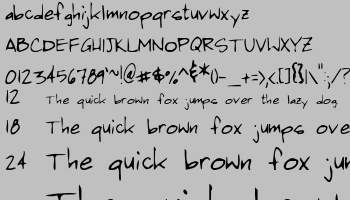 abcdefghijklmnopqrstuvwxyz
ABCDEFGHIJKLMNOPQRSTUVWXYZ
0123456789`~!@#$%^&*()-_+=>,<.[]{}|\":;/?
12 The quick brown fox jumps over the lazy dog
18 The quick brown fox jumps ove
24 The quick brown fox jum